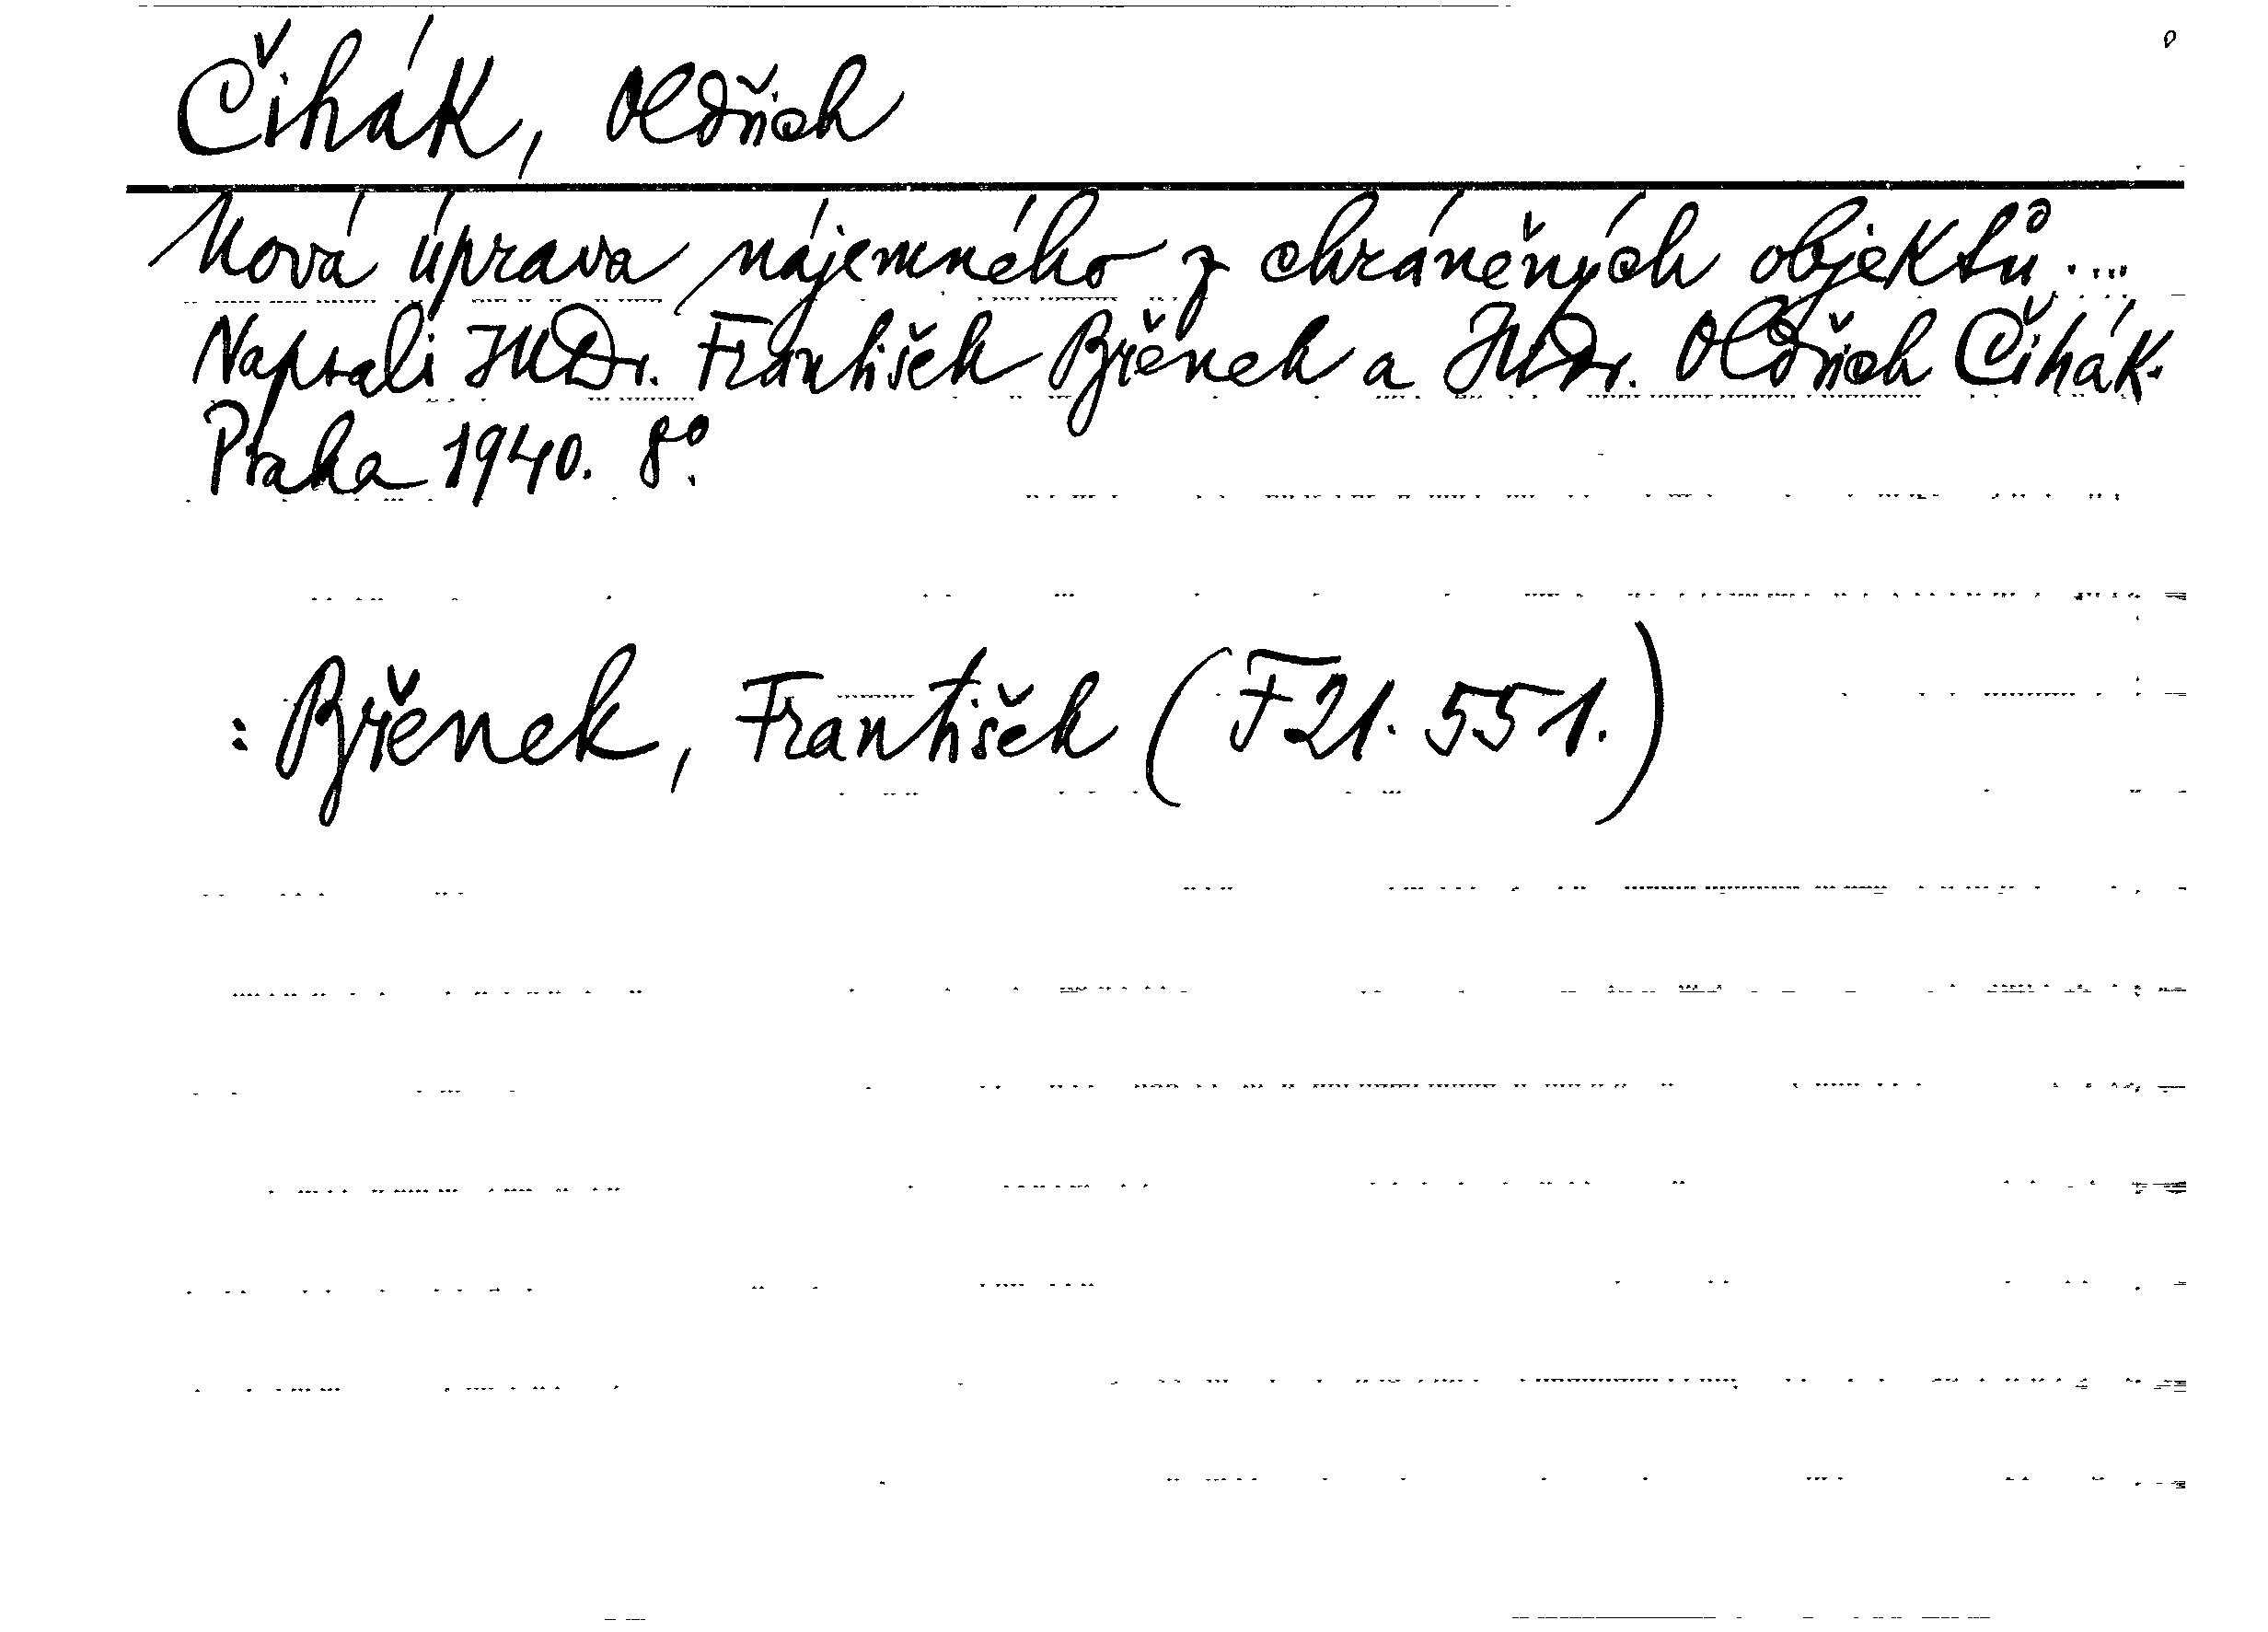 Čihák, Oldřich
Nová úprava nájemného z chráněných objektů....
Napsali JUDr. František Břěnek a JUDr. Oldřich Čihák.
Praha 1940. 8°.
: Břěnek, František (F 21.551.)